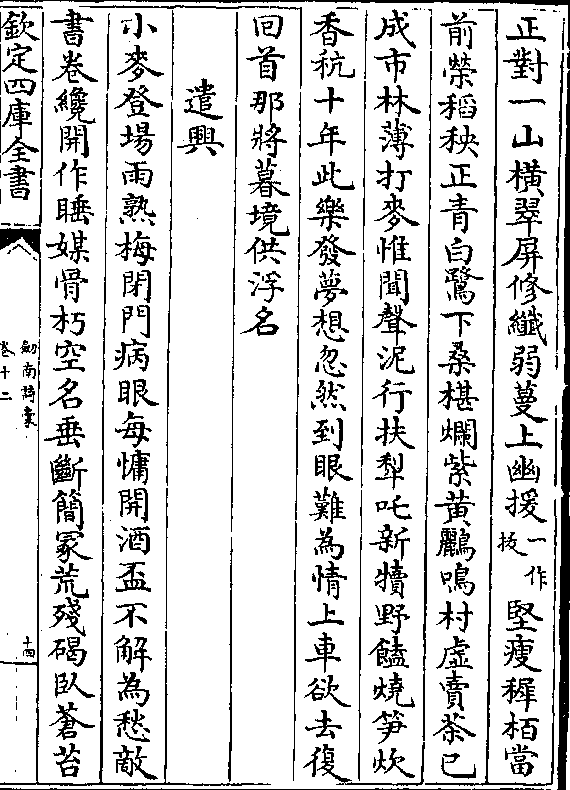 正對一山横翠屏修纖弱蔓上幽援一作扳堅瘦穉栢當
前榮稻秧正青白鷺下桑椹爛紫黃鸝鳴村虛賣茶已
成市林薄打麥惟聞聲泥行扶犁叱新犢野饁燒笋炊
香秔十年此樂發夢想忽然到眼難為情上車欲去復
回首那將暮境供浮名
遣興
小麥登場雨熟梅閉門病眼每慵開酒盃不解為愁敵
書卷纔開作睡媒骨朽空名垂斷簡冢荒殘碣臥蒼苔
欽定四庫全書
劍南詩稾
卷十二
十四